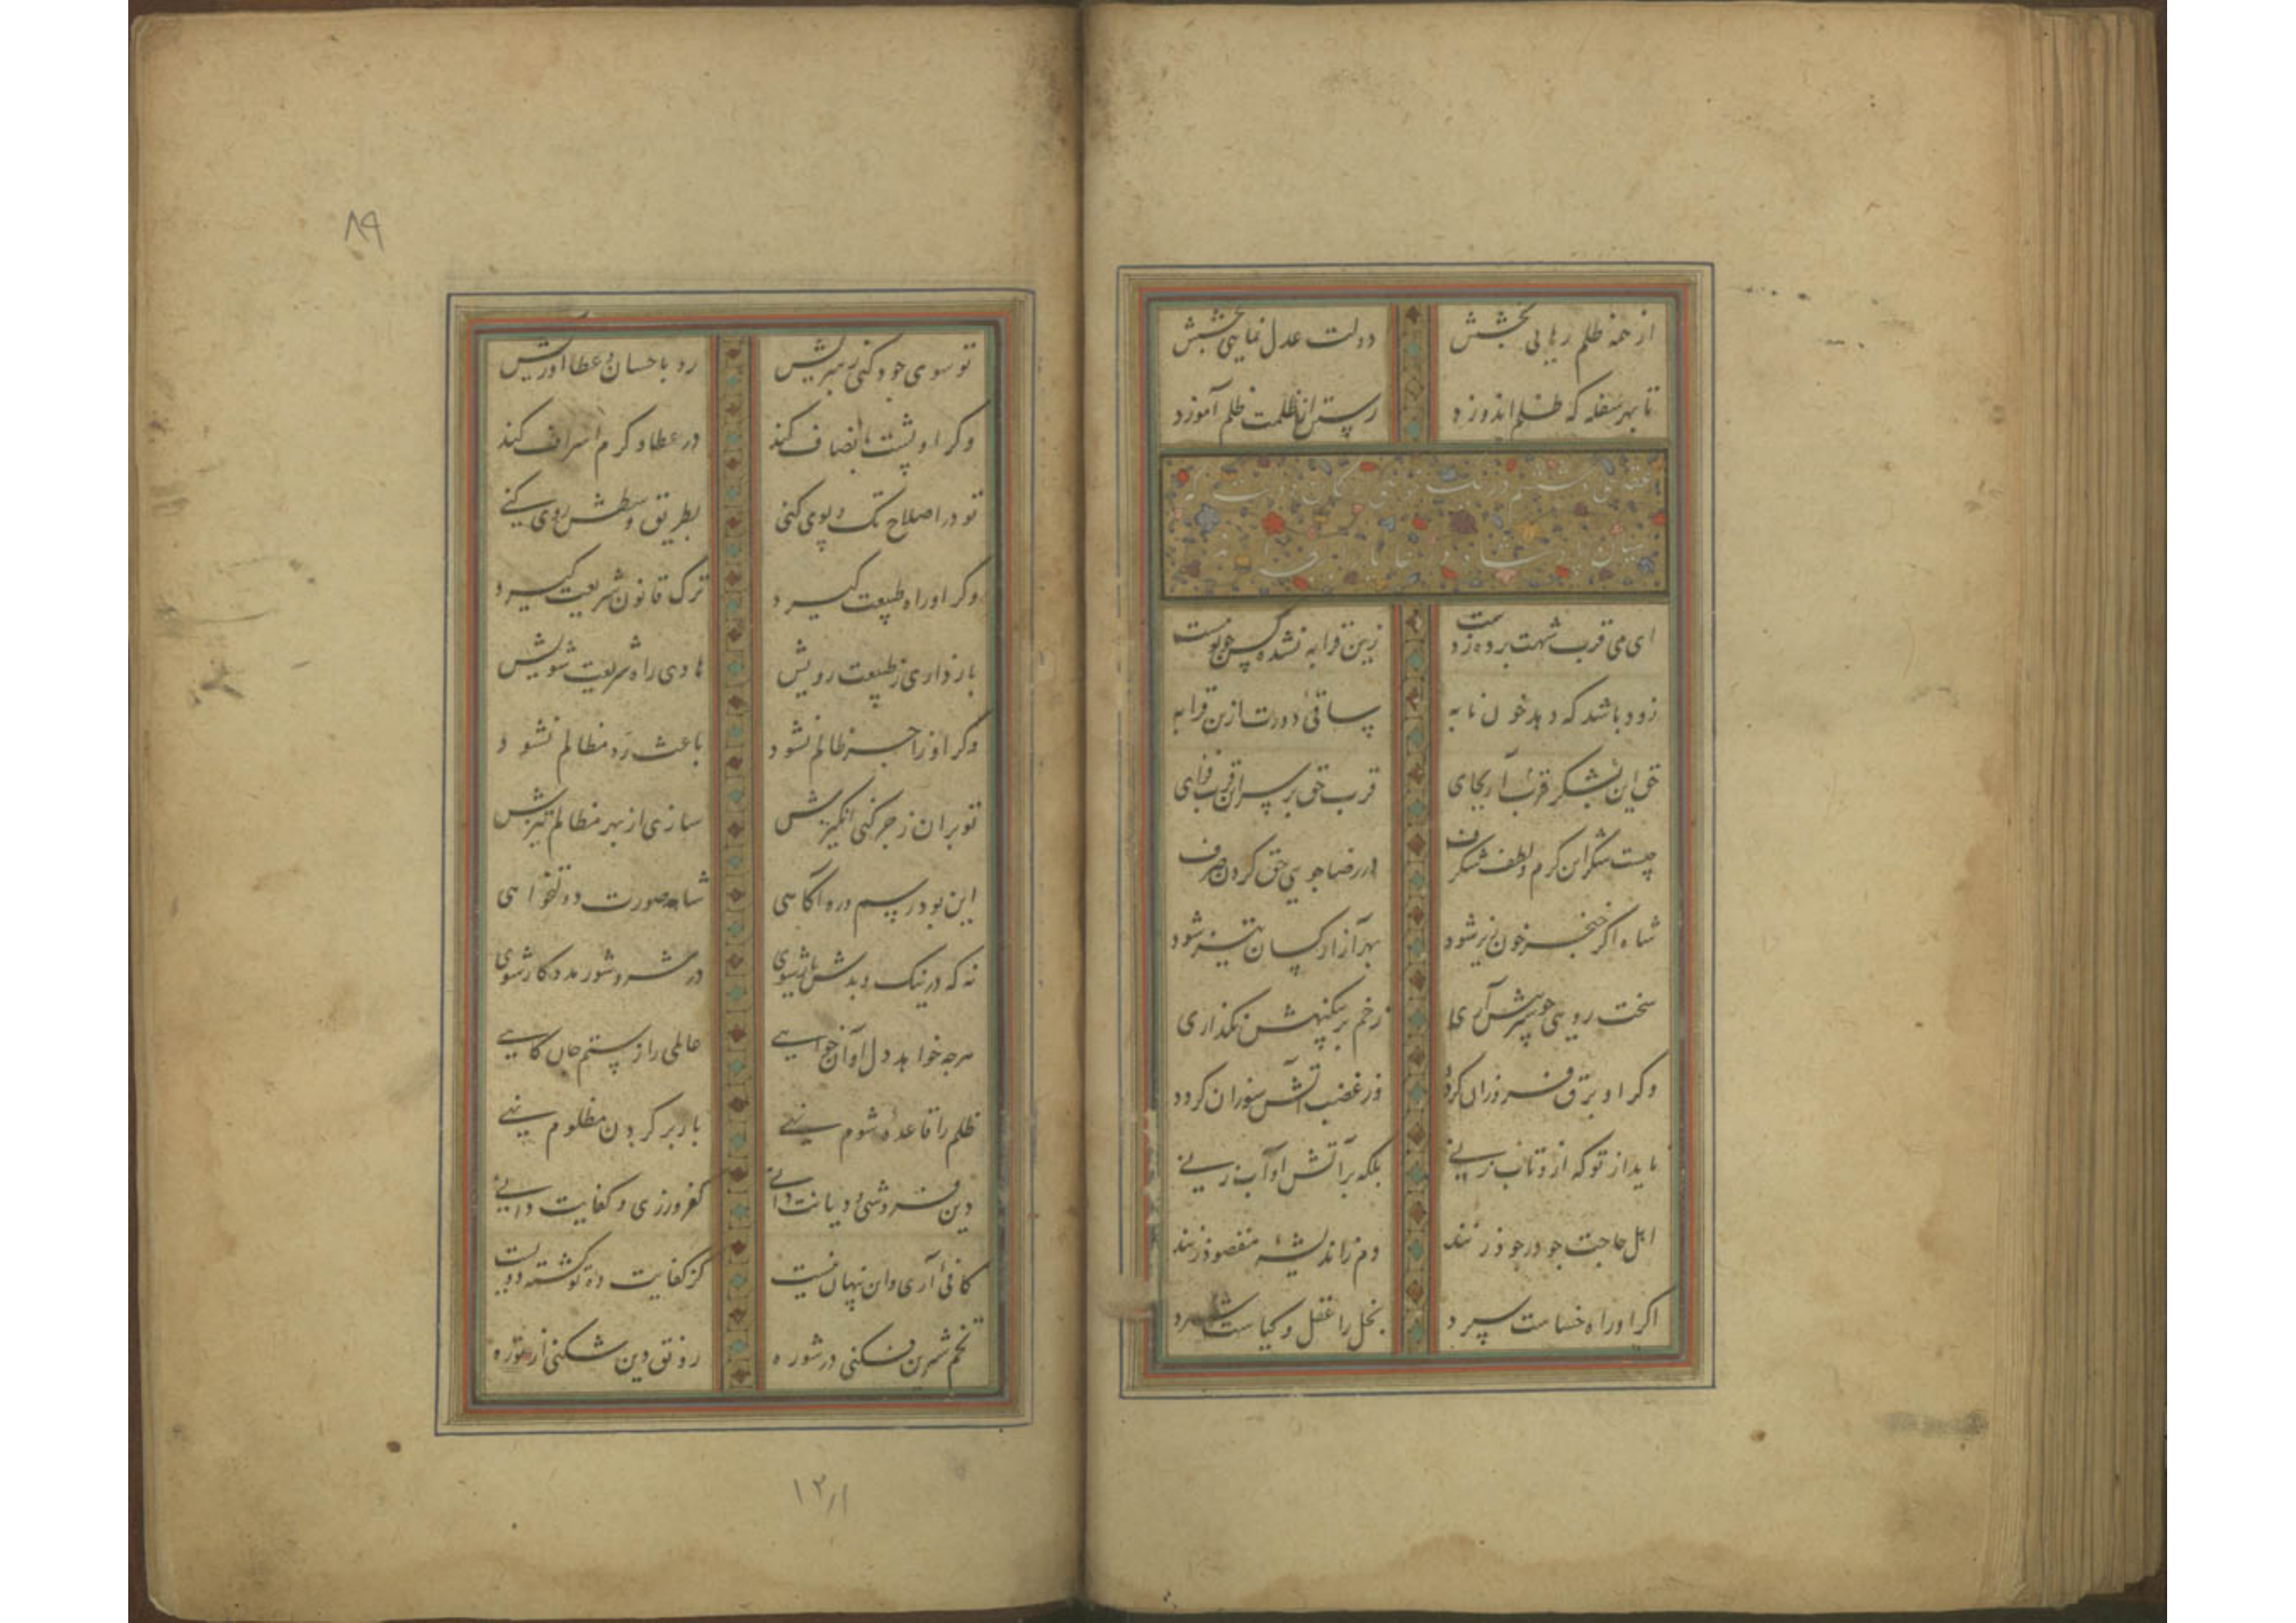 از همه ظلم رهایی بخشش دولت عدل نمایی بخشش
تا بهر سفله که ظلم اندوزد رستن از ظلمت ظلم آموزد
عقد سی و ششم در
میان پادشاه و رعایا
ای می قرب شهت برده ز دست زین قرابه نشده کس چو تو مست
زود باشد که دهد خون نابه ساقی دورت ازین قرابه
حق این شکر قرب آر بجای قرب حق بر سر این قرب فزای
چیست شکر این کرم و لطف شگرف در رضا جویی حق کردن صرف
شاه اگر خنجر خون ریز شود بهر آزار کسان تیز شود
سخت رویی چو سپر پیش آری زخم بر بیگنهش نگذاری
وگر او برق فروزان گردد وز غضب آتش سوزان گردد
باید از تو که ازو تاب زنی بلکه بر آتش او آب زنی
اهل حاجت چو در جود زنند دم ز اندیشهٔ مقصود زنند
اگر او راه خساست سپرد بخل را عقل و کیاست شمرد
تو سوی جود کنی رهبریش رو باحسان و عطا آوریش
وگر او پشت بانصاف کند در عطا و کرم اسراف کند
تو در اصلاح تک و پوی کنی بطریق وسطش روی کنی
وگر او راه طبیعت گیرد ترک قانون شریعت گیرد
باز داری ز طبیعت رویش هادی راه شریعت شویش
وگر او زاجر ظالم نشود باعث رد مظالم نشود
تو بران زجر کنی انگیزش سازی از بهر مظالم تیزش
این بود رسم و ره آگاهی شاه صورت دولتخواهی
نه که در نیک و بدش یار شوی در شر و شور مددکار شوی
هرچه خواهد دل او آن خواهی عالمی را ز ستم جان کاهی
ظلم را قاعدهٔ شوم نهی بار بر گردن مظلوم نهی
دین فروشی و دیانت دانی کفر ورزی و کفایت دانی
کافی آری و این پنهان نیست کز کفایت دهٔ تو گشته دویست
تخم شیرین فکنی در شوره رونق دین شکنی از توره
۸۹
۱۲۱